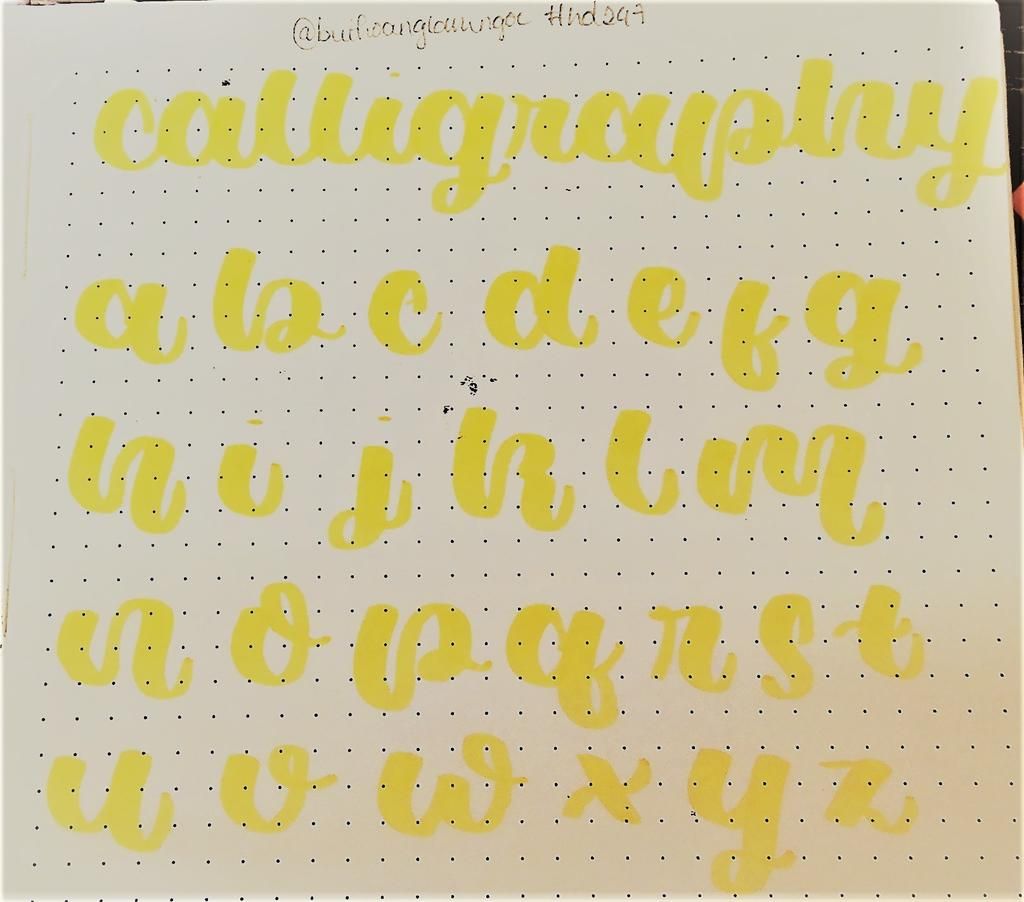 @buihoanglamngoc
calligraphy
a b c d e f g
h i j k l m
n o p q r s t
u v w x y z